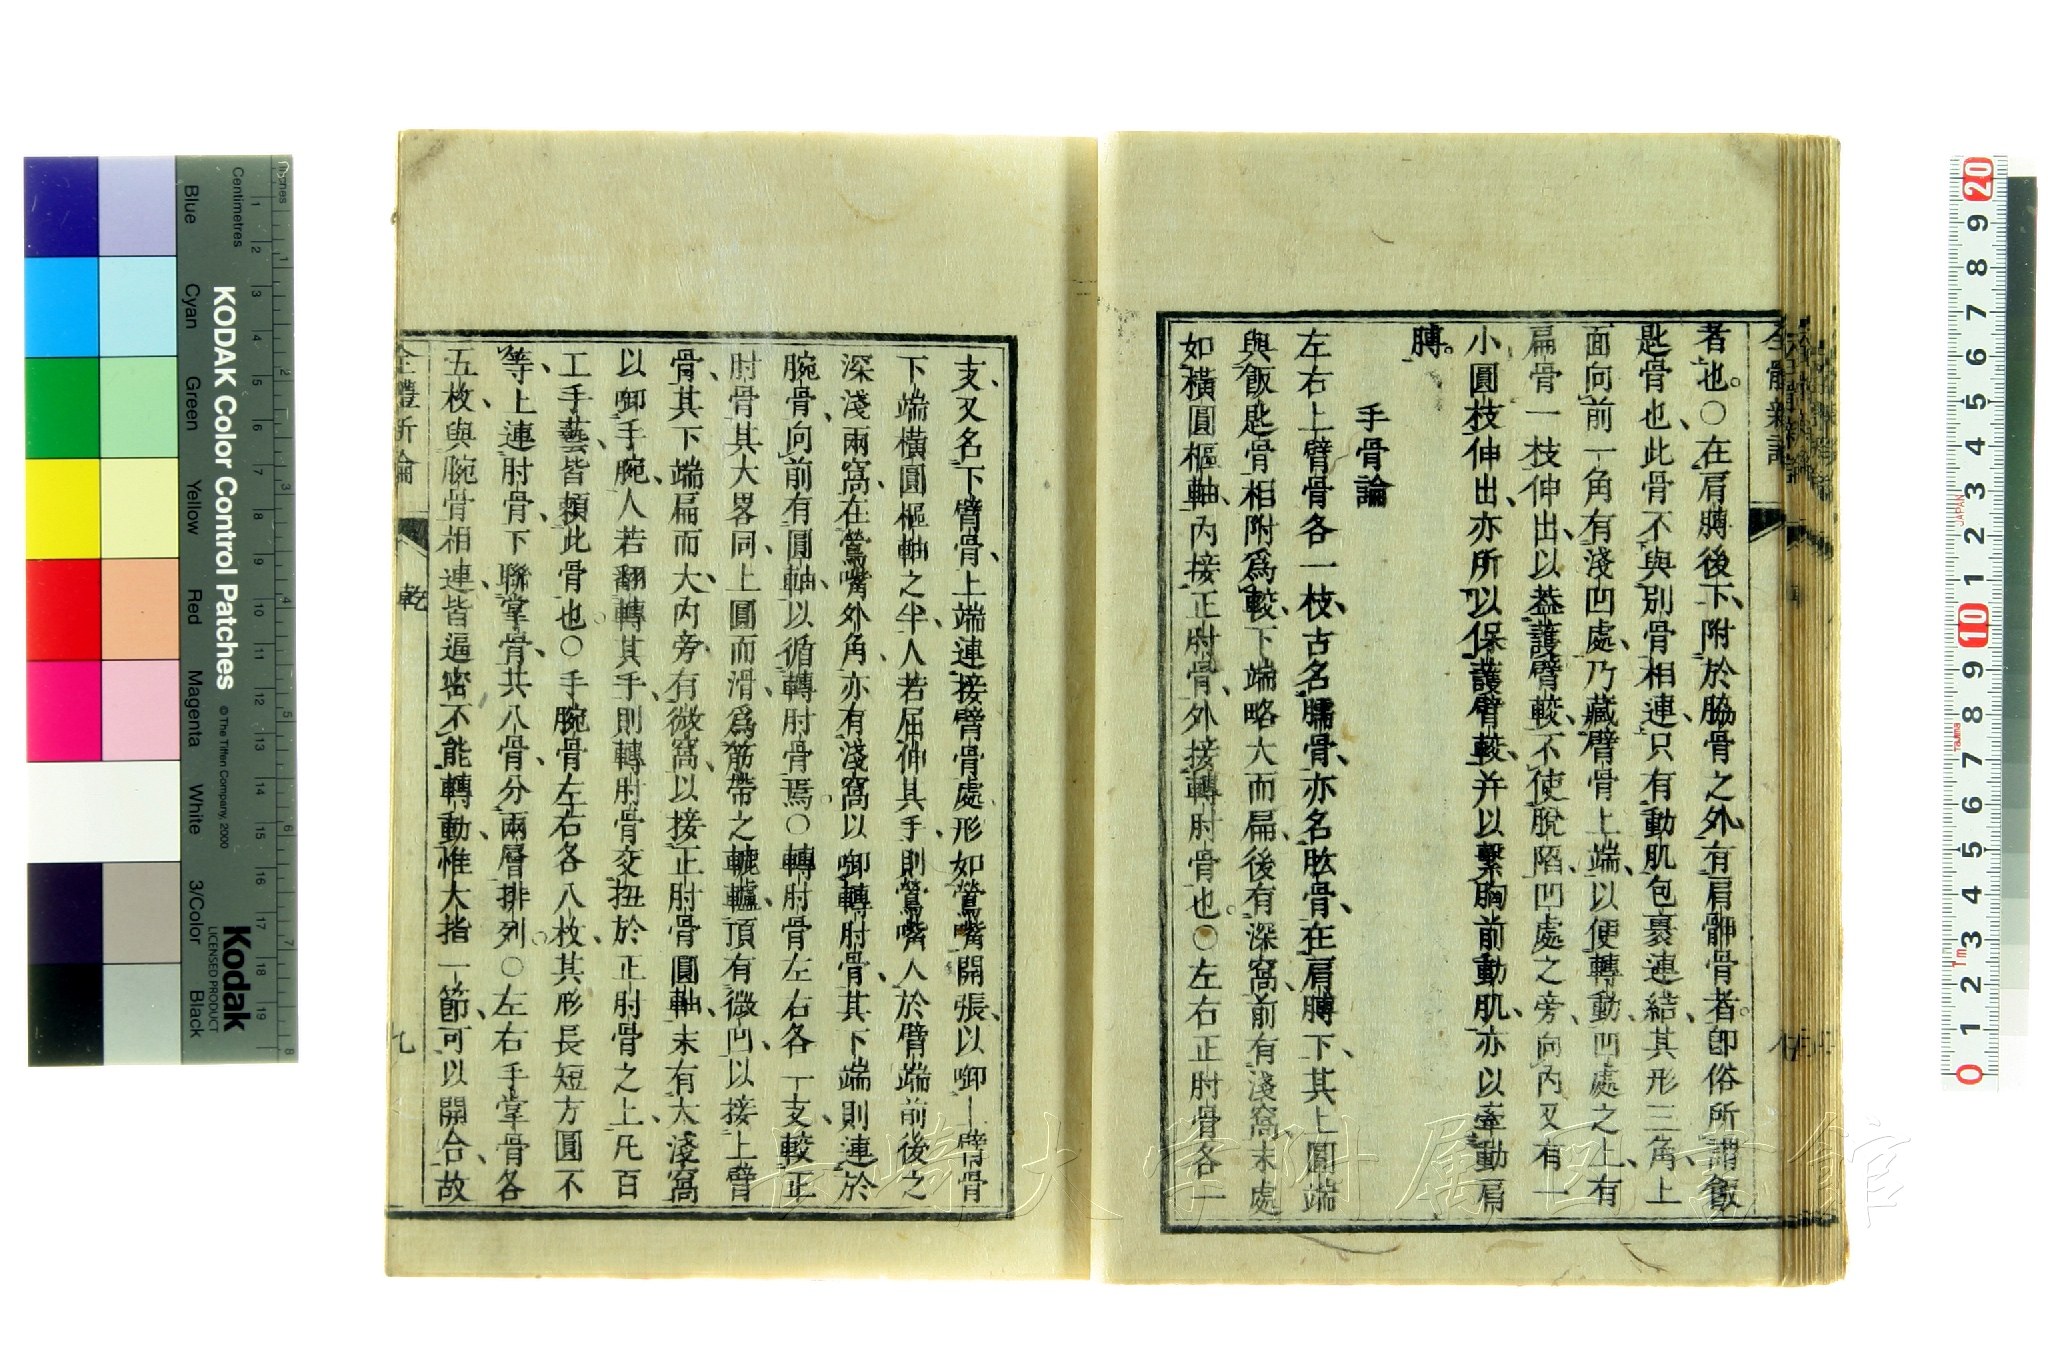 者也。○在肩膊後下、附於脇骨之外、有肩胛骨者。即俗所謂飯
匙骨也、此骨不與別骨相連、只有動肌包裹連結、其形三角、上
面向前一角有淺凹處、乃藏臂骨上端、以便轉動、凹處之上、有
扁骨一枝伸出、以葢護臂骹、不使脫陷、凹處之旁、向內又有一
小圓枝伸出、亦所以保護臂骹、并以繫胸前動肌、亦以牽動肩
膊。
手骨論
左右上臂骨各一枝、古名臑骨、亦名肱骨、在肩膊下、其上圓端
與飯匙骨相附爲骹、下端略大而扁、後有深窩、前有淺窩、末處
如橫圓樞軸、內接正肘骨、外接轉肘骨也。○左右正肘骨各一
支、又名下臂骨、上端連接臂骨處、形如鶯嘴開張、以啣上臂骨
下端橫圓樞軸之半、人若屈伸其手、則鶯嘴入於臂端前後之
深淺兩窩、在鶯嘴外角、亦有淺窩以啣轉肘骨、其下端則連於
腕骨、向前有圓軸、以循轉肘骨焉。○轉肘骨左右各一支、較正
肘骨其大畧同、上圓而滑、爲筋帶之轆轤、頂有微凹、以接上臂
骨、其下端扁而大、內旁有微窩、以接正肘骨圓軸、末有大淺窩
以啣手腕、人若翻轉其手、則轉肘骨交扭於正肘骨之上、凡百
工手藝、皆頼此骨也。○手腕骨左右各八枚、其形長短方圓不
等、上連肘骨、下聯掌骨、共八骨、分兩層排列。○左右手掌骨各
五枚、與腕骨相連、皆逼密不能轉動、惟大指一節、可以開合、故
全體新論
乾
九